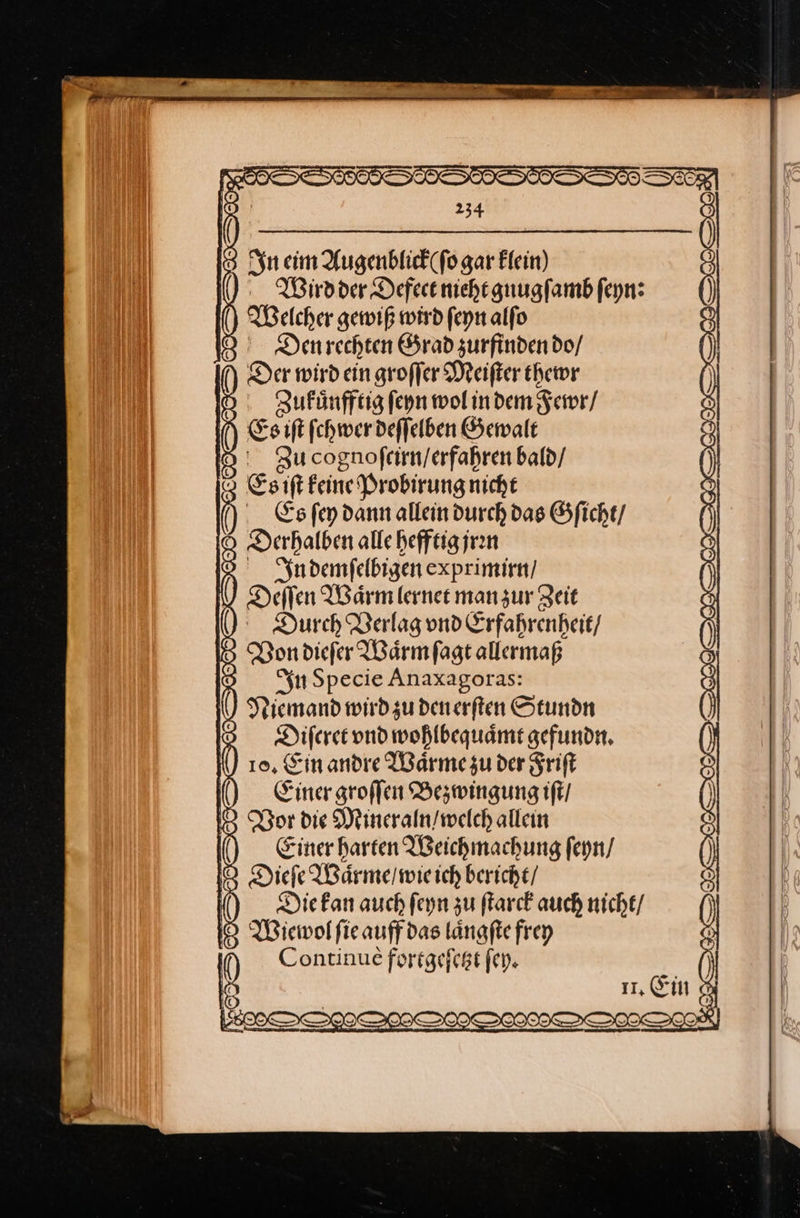 234
In eim Augenblick (ſo gar klein)
Wird der Defect nicht gnugſamb ſeyn:
Welcher gewiß wird ſeyn alſo
Den rechten Grad zurfinden do/
Der wird ein groſſer Meiſter thewr
Zukuͤnfftig ſeyn wol in dem Fewr/
Es iſt ſchwer deſſelben Gewalt
Zu cognoſeirn/erfahren bald/
Es iſt keine Probirung nicht
Es ſey dann allein durch das Gſicht/
Derhalben alle hefftig jrꝛn
In demſelbigen exprimirn/
Deſſen Waͤrm lernet man zur Zeit
Durch Verlag vnd Erfahrenheit/
Von dieſer Waͤrm ſagt allermaß
In Specie Anaxagoras:
Niemand wird zu den erſten Stundn
Diſeret vnd wohlbequaͤmt gefundn.
10. Ein andre Waͤrme zu der Friſt
Einer groſſen Bezwingung iſt/
Vor die Mineraln/welch allein
Einer harten Weichmachung ſeyn/
Dieſe Waͤrme/wie ich bericht/
Die kan auch ſeyn zu ſtarck auch nicht/
Wiewol ſie auff das laͤngſte frey
Continuè fortgeſetzt ſey.
11. Ein